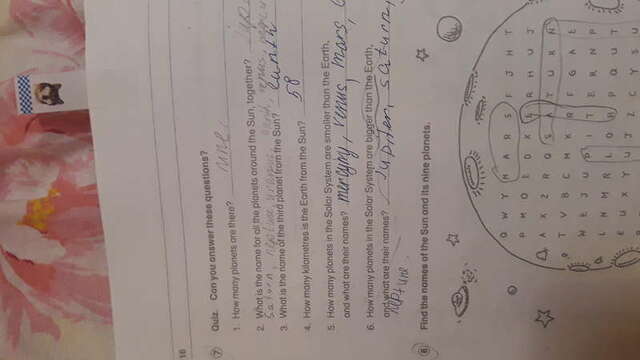 16
7 Quiz. Can you answer these questions?
1. How many planets are there? nine
2. What is the name for all the planets around the Sun, together?
Saturn, neptune, uranus,
3. What is the name of the third planet from the Sun?
4. How many kilometres is the Earth from the Sun? 58
5. How many planets in the Solar System are smaller than the Earth,
and what are their names? mercyry, venus, mars,
6. How many planets in the Solar System are bigger than the Earth,
and what are their names? Jupiter, saturn,
neptune
8 Find the names of the Sun and its nine planets.
Q W Y M A R S F J H T
P M O E D X E R H U J
A X Z R Q S A T U R N
T V B C M K R F G A E
W E J U P I T E R N P
L N M R L O H P Q U T
E U X Y U J Z C Y S U